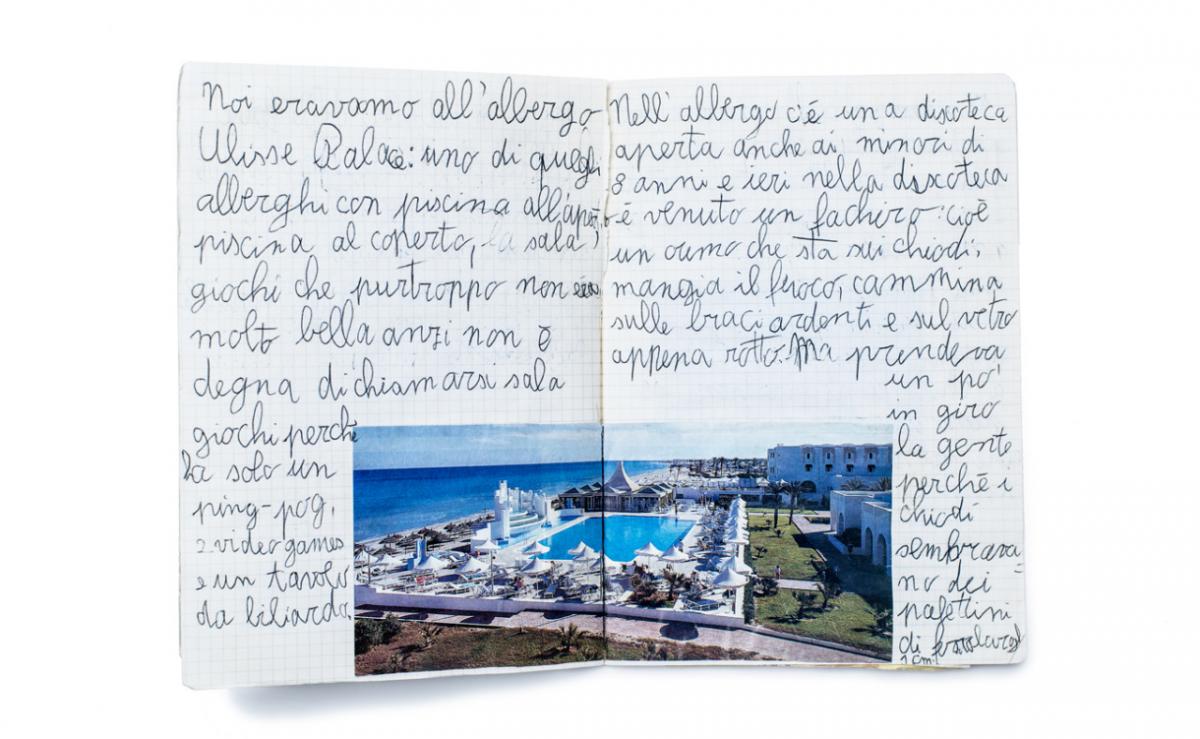 Noi eravamo all'albergo
Ulisse Palace: uno di quegli
alberghi con piscina all'aperto,
piscina al coperto, la sala
giochi che purtroppo non era
molto bella anzi non è
degna di chiamarsi sala
giochi perchè
ha solo un
ping-pog,
2 video games
e un tavolo
da biliardo.
Nell'albergo c'é una discoteca
aperta anche ai minori di
8 anni e ieri nella discoteca
é venuto un fachiro: cioè
un uomo che sta sui chiodi,
mangia il fuoco, cammina
sulle braci ardenti e sul vetro
appena rotto. Ma prendeva
un po'
in giro
la gente
perché i
chiodi
sembrava
no dei
palettini
di
1 cm!